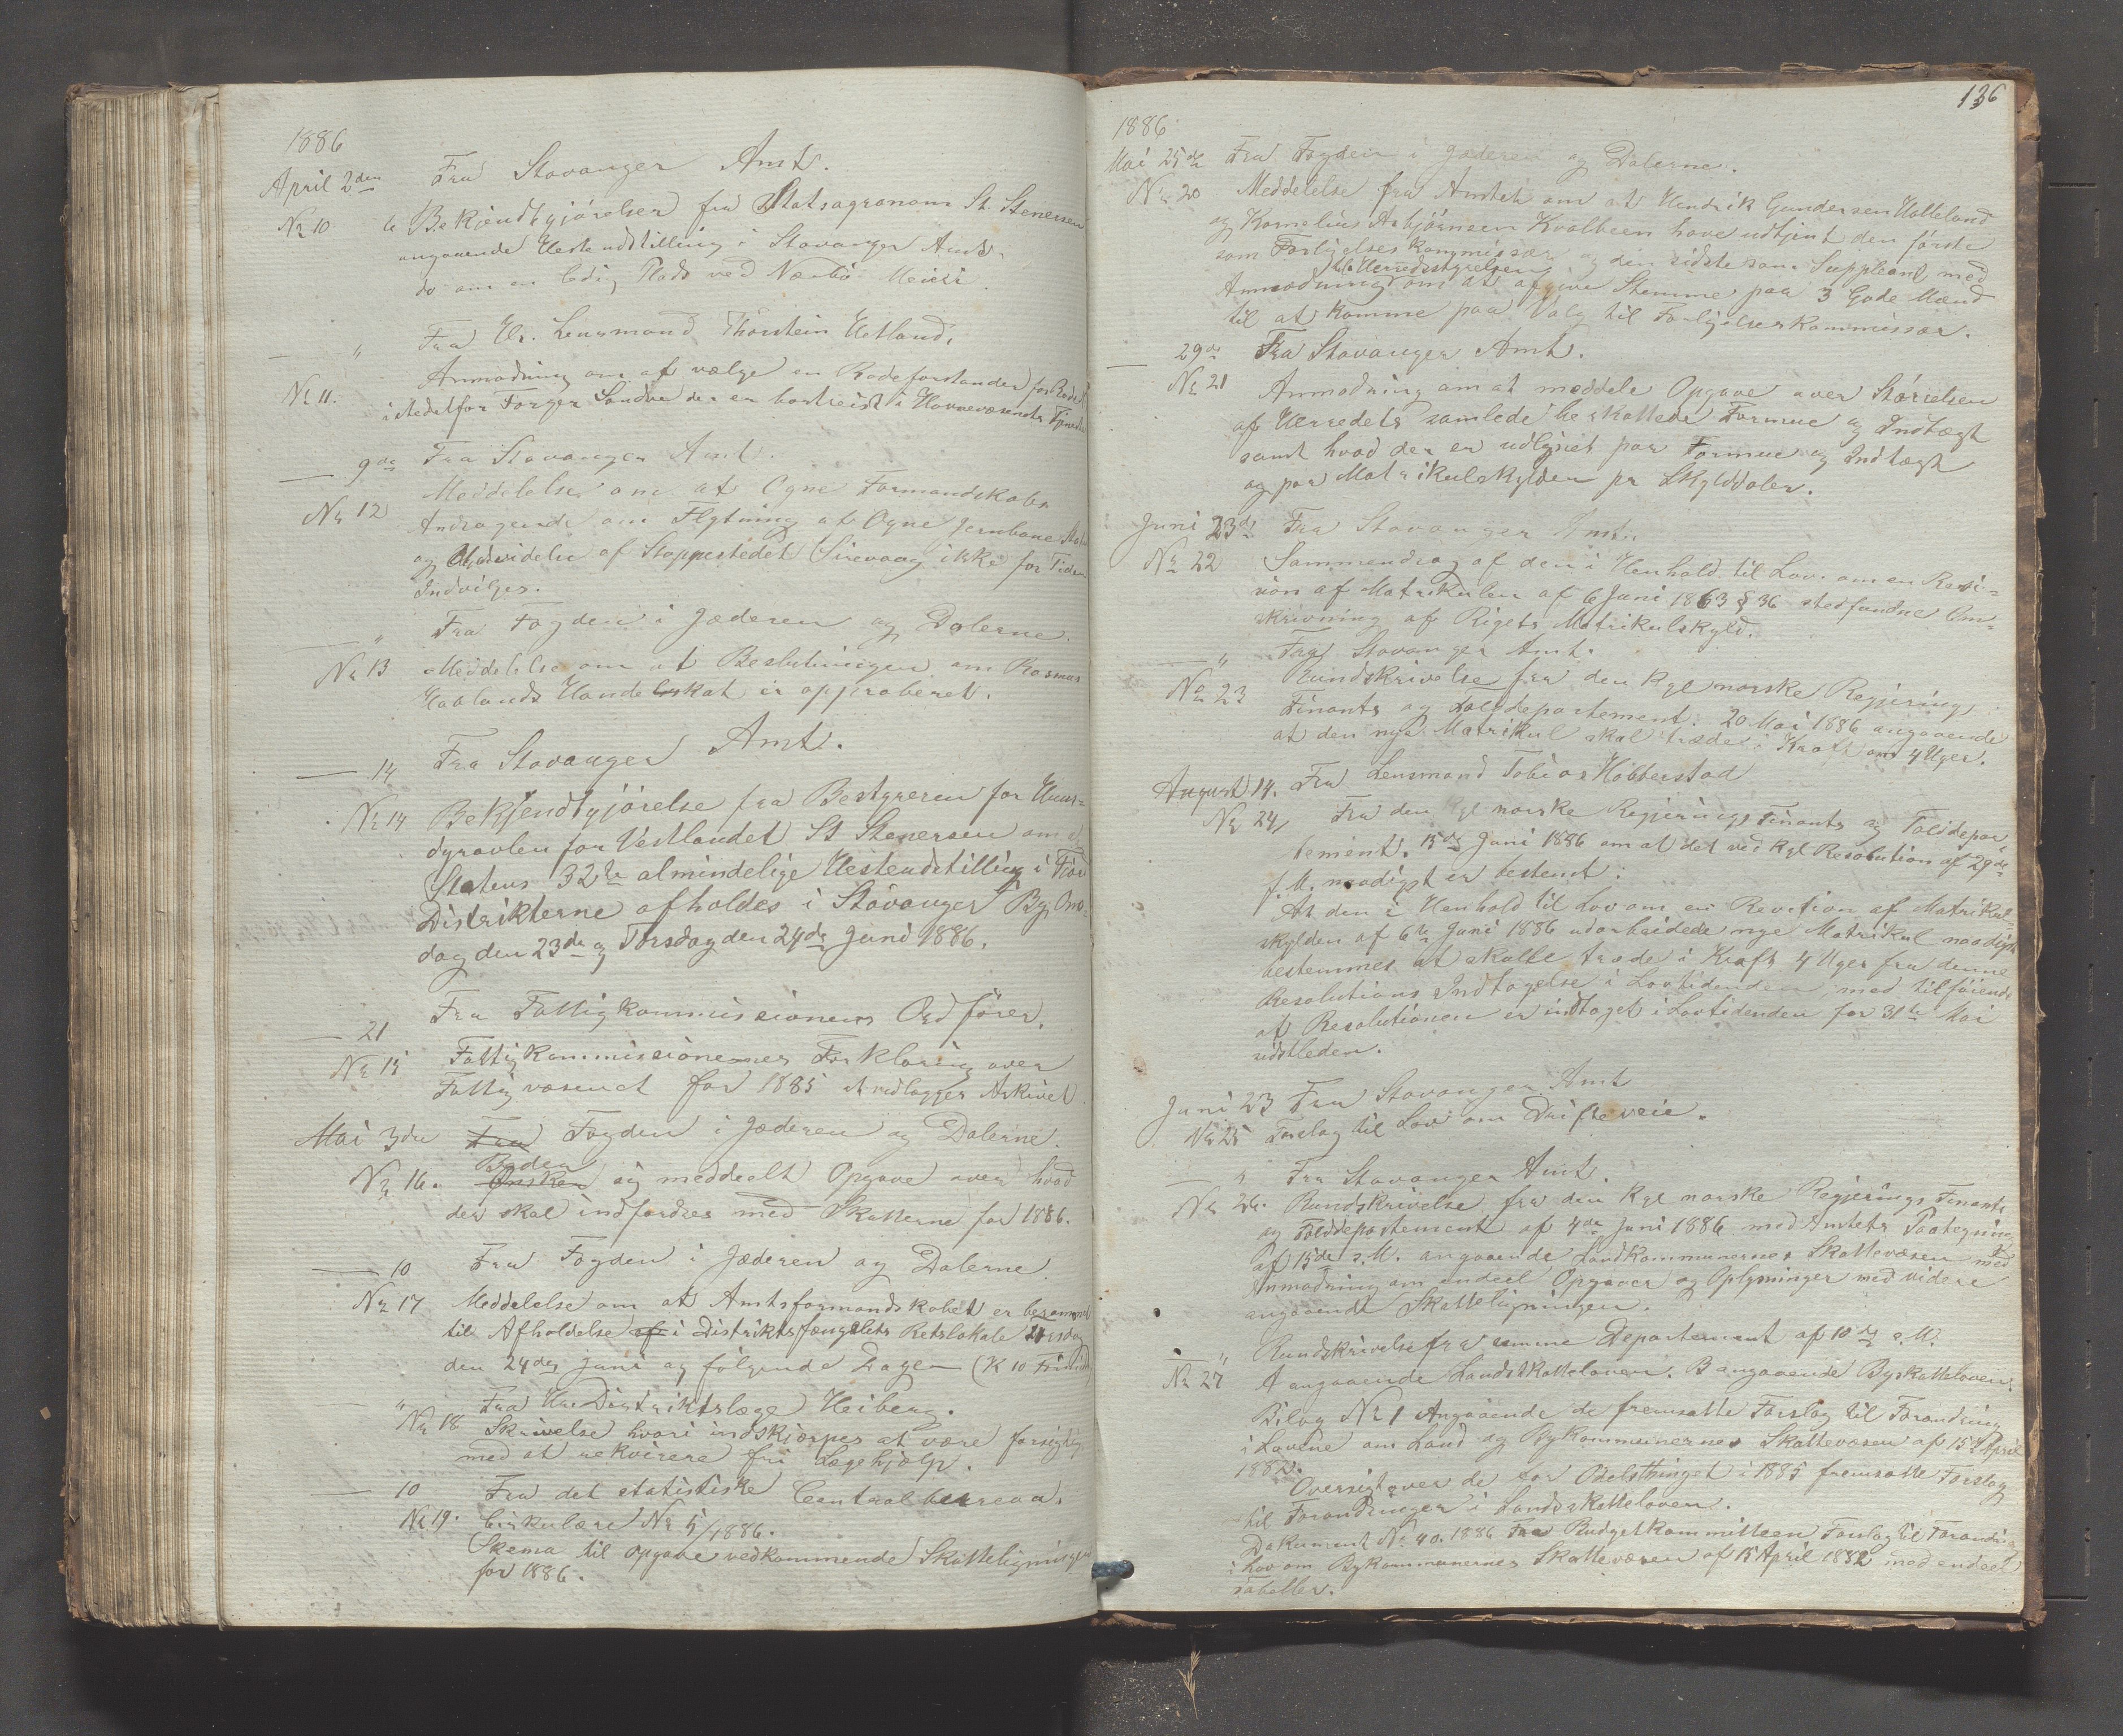 1886
April 2den Fra Stavanger Amt.
No 10 6 Bekjendtgjörelser fra Statsagronom St. Stenersen
angaaende Hesteudstilling i Stavanger Amt.
do om en ledig Plads ved Nærbö Meieri.
— " Fra Hr. Lensmand Thorstein Hetland,
No 11. Anmodning om at vælge en Rodeforstander for Rode
istedetfor Torger Sandve der er bortreist i Havnevæsenets Tjeneste
— 9de Fra Stavanger Amt.
No 12 Meddelelse om at Ogne Formandskabs
Andragende om Flytning af Ogne Jernbane
og Udvidelse af Stoppestedet Sirevaag ikke for Tiden
Indvilges.
— " Fra Fogden i Jæderen og Dalerne.
No 13 Meddelelse om at Beslutningen om Rasmus
Haalands Handelsskat er approberet.
— 14 Fra Stavanger Amt.
No 14 Bekjendtgjörelse fra Bestyreren for Huus-
dyravlen for Vestlandet St Stenersen om at
Statens 32te almindelige Hesteudstilling i Fjord
Distrikterne afholdes i Stavanger By Ons-
dag den 23de og Torsdag den 24de Juni 1886.
— 21 Fra Fattigkommissionens Ordförer.
No 15 Fattigkommissionernes Forklaring over
Fattigvæsenet for 1885 at vedlægges Arkivet
Mai 3die Fra Fogden i Jæderen og Dalerne.
Beder
No 16. Ønsker sig meddeelt Opgave over hvad
der skal indfordres med Skatterne for 1886.
— 10 Fra Fogden i Jæderen og Dalerne
No 17 Meddelelse om at Amtsformandskabet er berammet
til Afholdelse af i Distriktsfængslets Retslokale Torsdag
den 24de Juni og fölgende Dage (K 10 Formid
" Fra Hr. Distriktslæge Heiberg.
No 18 Skrivelse hvori indskjærpes at være forsigtig
med at rekvirere fri Lægehjælp.
— 10 Fra det statistiske Centralbureau.
No 19. Cirkulære No 5/1886.
Skema til Opgave vedkommende Skatteligningen
for 1886.
136
1886
Mai 25de Fra Fogden i Jæderen og Dalerne.
No 20 Meddelelse fra Amtet om at Hendrik Gundersen Hatleland
og Kornelius Asbjörnsen Kvalbeen have udtjent den förste
som Forligelseskommissær og den sidste som Suppleant, med
til Herredsstyrelsen
Anmodning om at afgive Stemme paa 3 Gode Mænd
til at komme paa Valg til Forligelseskommissær.
— 29de Fra Stavanger Amt.
No 21 Anmodning om at meddele Opgave over Störrelsen
af Herredets samlede beskattede Formue og Indtægt
samt hvad der er udlignet paa Formue og Indtægt
og paa Matrikulskylden pr Skylddaler.
Juni 23de Fra Stavanger Amt.
No 22 Sammendrag af den i Henhold til Lov om en Revi-
sion af Matrikulen af 6 Juni 1863 § 36 stedfundne Om-
skrivning af Rigets Matrikulskyld.
— " Fra Stavanger Amt.
No 23 Rundskrivelse fra den Kgl norske Regjerings
Finants og Tolddepartement. 20 Mai 1886 angaaende
at den nye Matrikul skal træde i Kraft om 4 Uger.
August 14. Fra Lensmand Tobias Hobberstad
No 24 Fra den Kgl norske Regjerings Finants og Toldepar
tement. 15de Juni 1886 om at det ved Kgl Resolution af 29de
f. M. naadigst er bestemt:
At den i Henhold til Lov om en Revision af Matrikul-
skylden af 6te Juni 1886 udarbeidede nye Matrikul naadigst
bestemmes at skulle træde i Kraft 4 Uger fra denne
Resolutions Indtagelse i Lovtidenden, med tilföiende
at Resolutionen er indtaget i Lovtidenden for 31te Mai
sidstleden.
Juni 23 Fra Stavanger Amt
No 25 Forslag til Lov om Drifteveie.
— " Fra Stavanger Amt.
No 26. Rundskrivelse fra den Kgl norske Regjerings Finants
og Tolddepartement af 4de Juni 1886 med Amtets Paategning
af 15de s. M. angaaende Landkommunernes Skattevæsen med
Anmodning om endeel Opgaver og Oplysninger med videre
angaaende Skatteligningen.
— " Rundskrivelse fra samme Departement af 10de s. M.
No 27 A angaaende Landskatteloven. B angaaende Byskatteloven.
Bilag No 1 Angaaende de fremsatte Forslag til Forandring
i Lovene om Land og Bykommunernes Skattevæsen af 15 April
1882.
Oversigt over de for Odelsthinget i 1885 fremsatte Forslag
til Forandringer i Landsskatteloven.
Dokument No 40. 1886 Fra Budgetkommitteen Forslag til Forandring
i Lov om Bykommunernes Skattevæsen af 15 April 1882 med endeel
Tabeller.